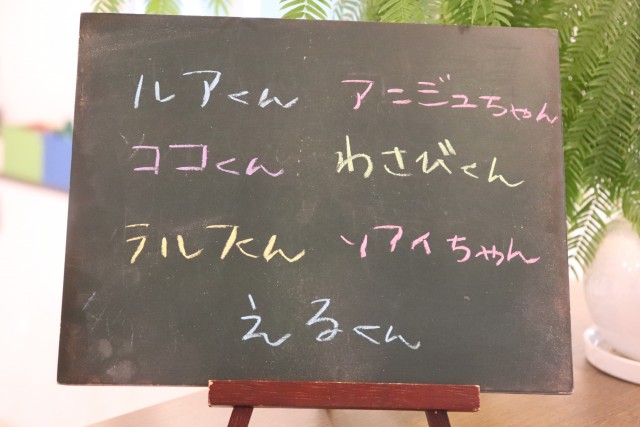 ルアくん アニジュちゃん
ココくん わさびくん
テルフくん ソアイちゃん
えるくん